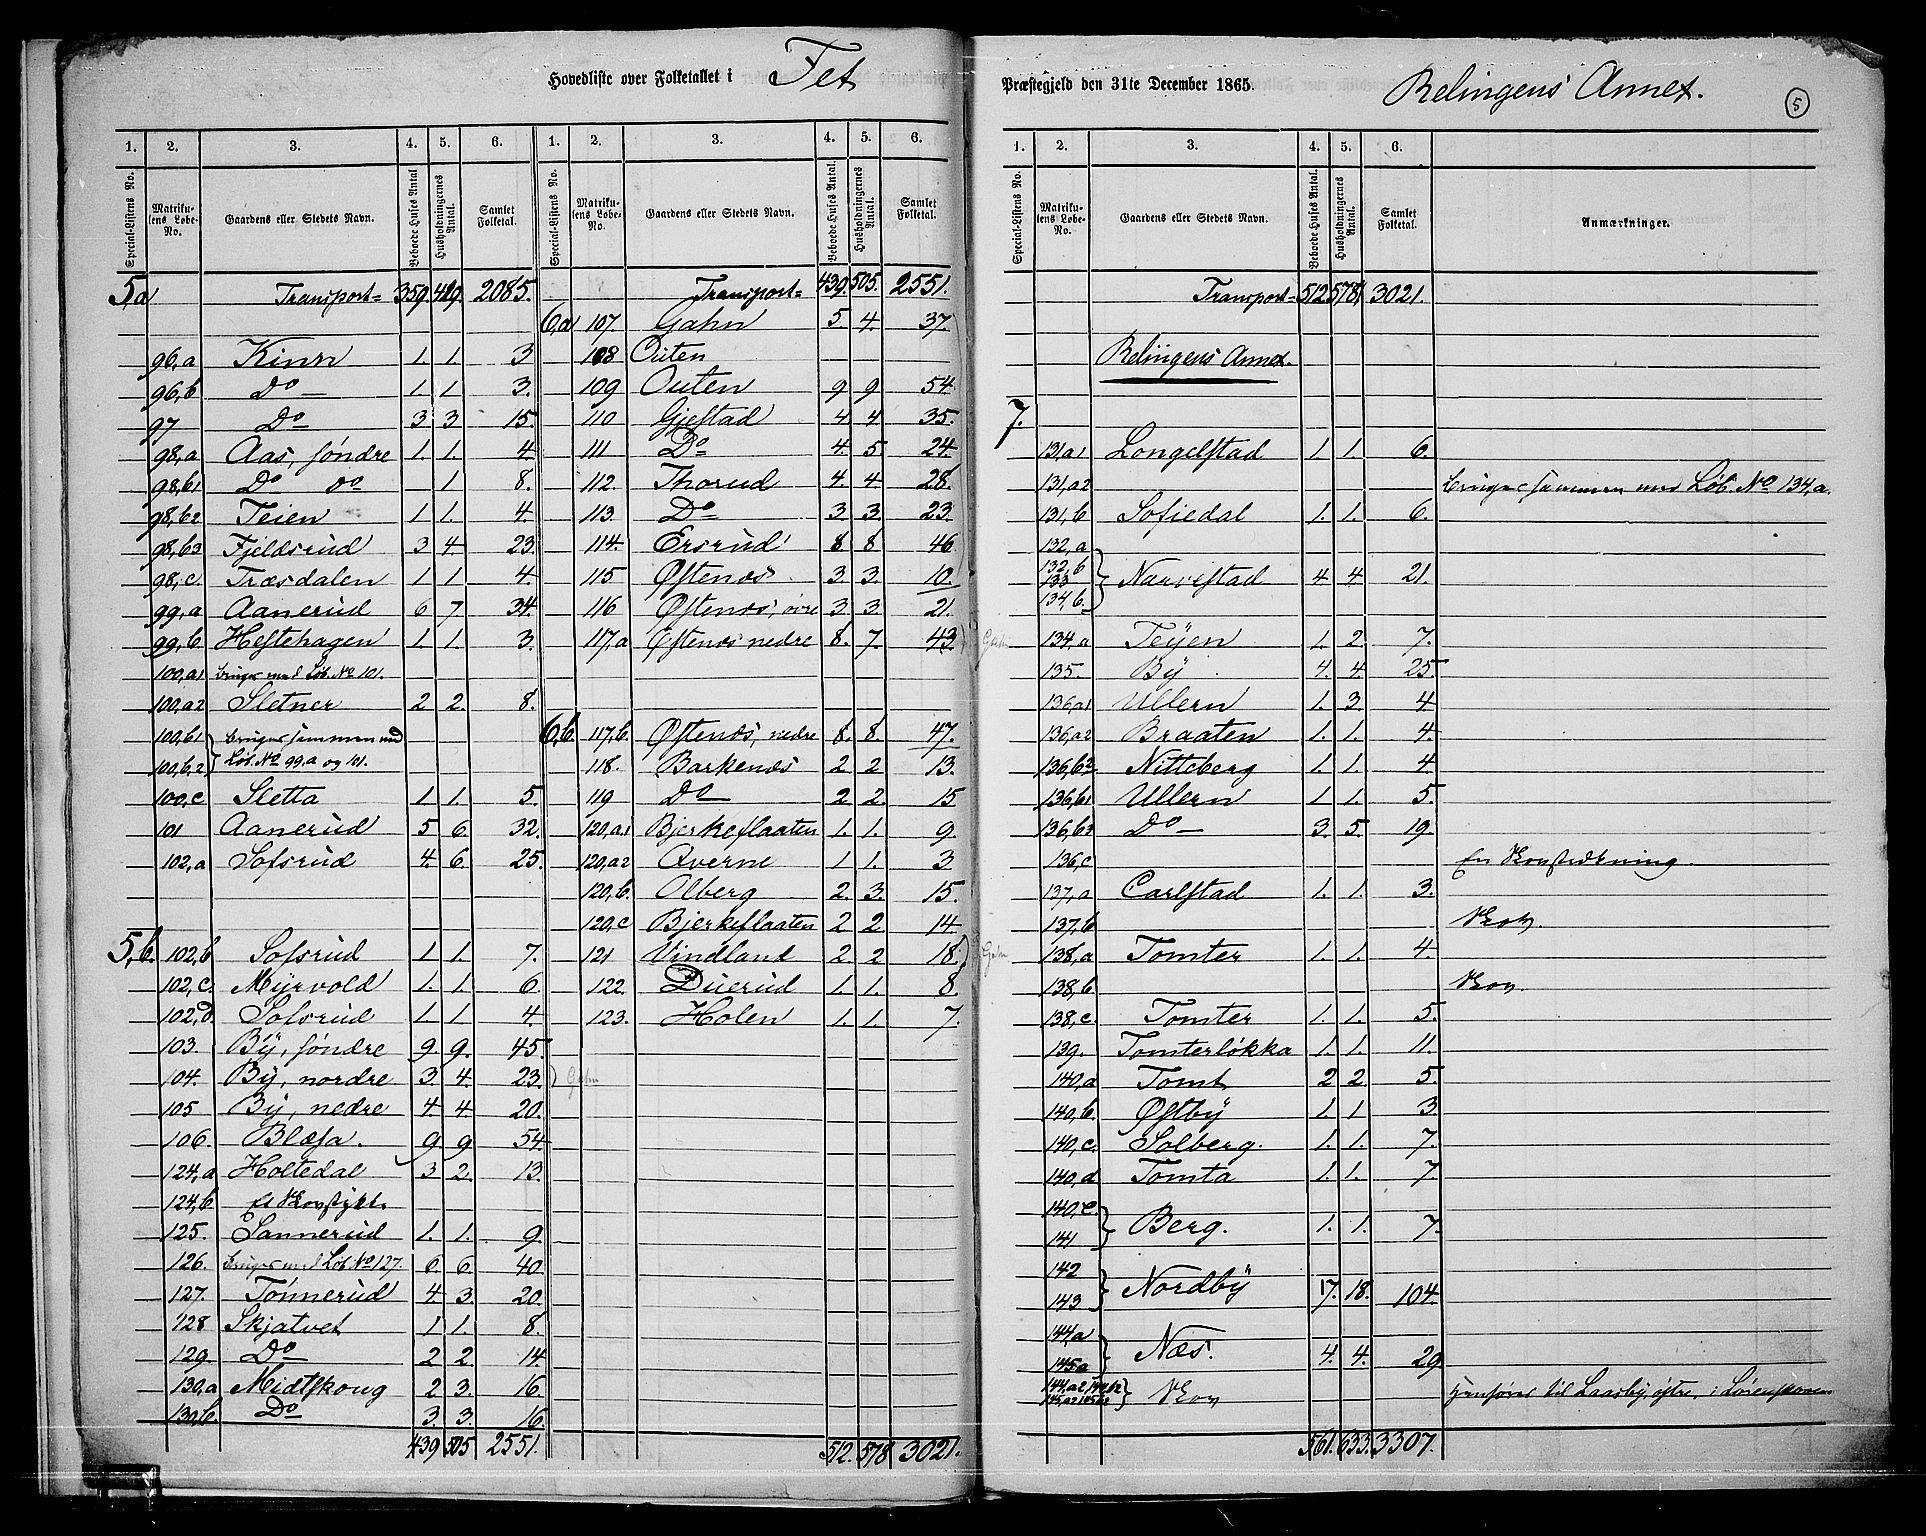 Hovedliste over Folketallet i Fet Præstegjeld den 31te December 1865. Relingens Annex. 5
1. 2. 3. 4. 5. 6. 1. 2. 3. 4. 5. 6.
Special-Listens No. Matrikulens Løbe-No. Gaardens eller Stedets Navn. Beboede Huses Antal Husholdningernes Antal. Samlet Folketal. Special-Listens No. Matrikulens Løbe-No. Gaardens eller Stedets Navn. Beboede Huses Antal Husholdningernes Antal. Samlet Folketal.
5,a Transport= 359. 419. 2085.
96,a Kinn 1. 1. 3
96,b Do — 1 1 3.
97 Do 3 3 15.
98,a Aas, søndre 1. 1. 4.
98,b1 Do do 1 8.
98,b2 Teien 1 1. 4.
98,b3 Fjeldsrud 3 4. 23.
98,c. Træsdalen 1 1 4.
99,a Aanerud 6 7 34.
99,b Hestehagen 1. 1. 3.
100,a1 bruges med Løb. No 101.
100,a2 Sletner 2 2. 8.
100,b1 bruges sammen med
100,b,2 Løb. No 99,a og 101.
100,c Sletta 1 1. 5.
101 Aanerud 5 6. 32.
102,a Sofsrud 4. 6 25.
5,b. 102,b Sofsrud 1 1. 7.
102,c. Myrvold 1. 1. 6
102,d. Sofsrud 1. 1 4.
103. By, søndre 9. 9. 45.
104. By, nordre 3. 4. 23. Gahn
105 By, nedre 4 4. 20.
106. Blæsa. 9. 9 54.
124,a Holtedal 3 2. 13.
124,b et Skovstykke
125. Sannerud 1. 1. 9.
126. bruges med Løb. No 127. 6 6. 40.
127. Tonnerud 4 3. 20.
128 Skjatvet 1 1. 8.
129. Do 2 2. 14.
130,a Midtskoug 2 3. 16.
130,b Do 3. 3. 16.
439 505 2551.
Transport= 439. 505. 2551.
6,a 107. Gahn 5. 4. 37.
108 Outen
109 Outen 9 9 54.
110 Gjestad 4 4 35.
111 Do 4. 5 24.
112. Thorud 4. 4 28.
113. Do 3 3. 23.
114. Ersrud 8 8 46
115 Østenæs 3. 3. 10.
116 Østenæs, øvre 3 3. 21.
117,a Østenæs nedre 8. 7. 43. Gahn
6,b. 117,b. Østenæs, nedre 8. 8. 47.
118. Barkenæs 2 2 13.
119 Do 2 2. 15
120,a1 Bjerkeflaaten 1. 1. 9.
120,a2 Averne 1 1. 3
120,b. Olberg 2. 3. 15.
120,c Bjerkeflaaten 2 2. 14.
121 Vindland 2 2 18. Gahn
122. Duerud 1. 1. 8.
123. Holen 1. 1. 7.
512. 578 3021.
1. 2. 3. 4. 5. 6.
Special-Listens No. Matrikulens Løbe-No. Gaardens eller Stedets Navn. Beboede Huses Antal. Husholdningernes Antal. Samlet Folketal. Anmærkninger.
Transport= 512 578 3021.
Relingens Annex.
7.
131,a1 Longelstad 1. 1. 6.
131,a2 bruges sammen med Løb. No 134,a.
131,b Sofiedal 1. 1. 6.
132,a
132,b
133 Narvestad 4 4 21.
134,b.
134,a Teyen 1. 2. 7.
135. By 4. 4. 25.
136,a1 Ullern 1. 3. 4
136,a2 Braaten 1. 1. 4.
136,b2 Nitteberg 1. 1. 4.
136,b1 Ullern 1 1. 5.
136,b3 Do — 3. 5. 19.
136,c En Skovstrækning.
137,a Carlstad 1. 1. 3.
137,b Skov.
138,a Tomter 1. 1. 4.
138,b Skov.
138,c. Tomter 1. 1. 5.
139. Tomterløkka 1. 1. 11.
140,a Tomt 2 2. 5.
140,b. Østby 1 1 3.
140,c. Solberg. 1. 1. 7.
140,d Tomta 1. 1. 7.
140,e.
141 Berg. 1. 1. 7.
142
143 Nordby 17. 18. 104.
144,a
145a Næs. 4. 4. 29
Skov henføres til Laasby østre, i Lørenskoven
561. 633. 3307.